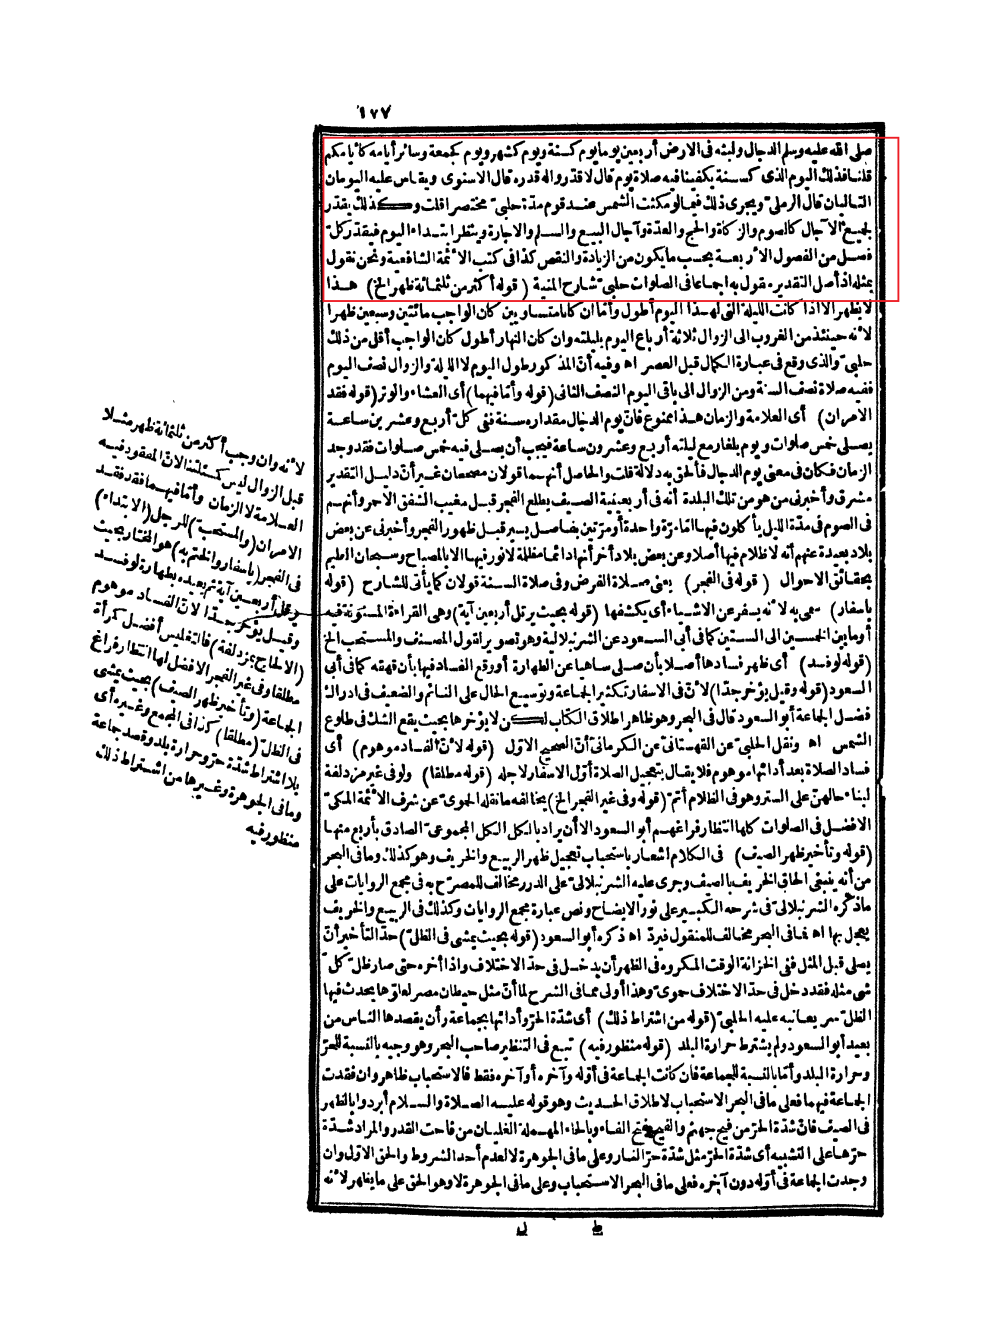 ١٧٧
صلى الله عليه وسلم الدجال ولبثه فى الارض أربعين يوما يوم كسنة ويوم كشهر ويوم كجمعة وسائر أيامه كأيامكم
قلنا فذلك اليوم الذى كسنة يكفينا فيه صلاة يوم قال لا قدروا له قدره قال الاسنوى ويقاس عليه اليومان
التاليان قال الرملىّ ويجرى ذلك فيما لو مكثت الشمس عند قوم مدّة حلبىّ مختصرا قلت وكذلك يقدّر
لجميع الآجال كالصوم والزكاة والحج والعدّة وآجال البيع والسلم والاجارة وينظر ابتداء اليوم فيقدّر كلّ
فصل من الفصول الأربعة بحسب ما يكون من الزيادة والنقص كذا فى كتب الأئمّة الشافعية ونحن نقول
بمثله اذ أصل التقدير مقول به اجماعا فى الصلوات حلبىّ شارح المنية (قوله أكثر من ثلثمائة ظهر الخ) هذا
لا يظهر الا اذا كانت الليلة التى لهذا اليوم أطول وأمّا ان كانا متساويين كان الواجب مائتين وسبعين ظهرا
لأنه حينئذ من الغروب الى الزوال ثلاثة أرباع اليوم بليلته وان كان النهار أطول كان الواجب أقل من ذلك
حلبىّ والذى وقع فى عبارة الكمال قبل العصر اه وفيه أنّ المذكور طول اليوم لا الليلة والزوال نصف اليوم
ففيه صلاة نصف السنة ومن الزوال الى باقى اليوم النصف الثانى (قوله وأمّا فيهما) أى العشاء والوتر (قوله فقد
الامران) أى العلامة والزمان هذا ممنوع فانّ يوم الدجال مقداره سنة ففى كلّ أربع وعشرين ساعة
يصلى خمس صلوات ويوم بلغار مع ليلته أربع وعشرون ساعة فيجب أن يصلى فيه خمس صلوات فقد وجد
الزمان فكان فى معنى يوم الدجال فألحق به دلالة قلت والحاصل أنهما قولان مصححان غير أنّ دليل التقدير
مشرق وأخبرنى من هو من تلك البلدة أنه فى أربعينية الصيف يطلع الفجر قبل مغيب الشفق الأحمر وأنهم
فى الصوم فى مدّة الليل يأكلون فيها امّا مرّة واحدة أو مرّتين بفاصل يسير قبل ظهور الفجر وأخبرنى عن بعض
بلاد بعيدة عنهم أنه لا ظلام فيها أصلا وعن بعض بلاد أخر أنها دائما مظلمة لا نور فيها الا بالمصباح وسبحان العليم
بحقائق الاحوال (قوله فى الفجر) يعنى صلاة الفرض وفى صلاة السنة قولان كما يأتى للشارح (قوله
باسفار) سمى به لأنه يسفر عن الاشياء أى يكشفها (قوله بحيث يرتل أربعين آية) وهى القراءة المسنونة فيه
أو ما بين الخمسين الى الستين كما فى أبى السعود عن الشرنبلالية وهو تصوير لقول المصنف والمستحب الخ
(قوله لو فسد) أى ظهر فسادها أصلا بأن صلى ساهيا عن الطهارة أو رقم الفساد فيها بأن قهقه كما فى أبى
السعود (قوله وقيل يؤخر جدّا) لأنّ فى الاسفار تكثير الجماعة وتوسيع الحال على النائم والضعيف فى ادراك
فضل الجماعة أبو السعود قال فى البحر وهو ظاهر اطلاق الكتاب لكن لا يؤخرها بحيث يقع الشك فى طلوع
الشمس اه ونقل الحلبىّ عن القهستانىّ عن الكرمانىّ أنّ الصحيح الاوّل (قوله لأنّ الفساد موهوم) أى
فساد الصلاة بعد أدائها موهوم فلا يقال بتعجيل الصلاة أوّل الاسفار لاجله (قوله مطلقا) ولو فى غير مزدلفة
لبناء حالهنّ على الستر وهو فى الظلام أتمّ (قوله وفى غير الفجر الخ) يخالفه ما نقله الحموىّ عن شرف الأئمّة المكىّ
الافضل فى الصلوات كلها انتظار فراغهم أبو السعود الا أن يراد بالكل الكل المجموعىّ الصادق بأربع منها
(قوله وتأخير ظهر الصيف) فى الكلام اشعار باستحباب تعجيل ظهر الربيع والخريف وهو كذلك وما فى البحر
من أنه ينبغى الحاق الخريف بالصيف وجرى عليه الشرنبلالىّ على الدرر مخالف للمصرّح به فى مجمع الروايات على
ما ذكره الشرنبلالىّ فى شرحه الكبير على نور الايضاح ونص عبارة مجمع الروايات وكذلك فى الربيع والخريف
يعجل بها اه فما فى البحر مخالف للمنقول فيردّ اه ذكره أبو السعود (قوله بحيث يمشى فى الظلّ) حدّ التأخير أن
يصلى قبل المثل ففى الخزانة الوقت المكروه فى الظهر أن يدخل فى حدّ الاختلاف واذا أخره حتى صار ظلّ كلّ
شئ مثله فقد دخل فى حدّ الاختلاف حموىّ وهذا أولى مما فى الشرح لما أنّ مثل حيطان مصر لعلوّها يحدث فيها
الظلّ سريعا نبه عليه الحلبىّ (قوله من اشتراط ذلك) أى شدّة الحرّ وأدائها بجماعة وأن يقصدها الناس من
بعيد أبو السعود ولم يشترط حرارة البلد (قوله منظور فيه) تبع فى التنظير صاحب البحر وهو وجيه بالنسبة للحرّ
وحرارة البلد وأمّا بالنسبة للجماعة فان كانت الجماعة فى أوّله وآخره أو آخره فقط فالاستحباب ظاهر وان فقدت
الجماعة فيهما فعلى ما فى البحر الاستحباب لاطلاق الحديث وهو قوله عليه الصلاة والسلام أبردوا بالظهر
فى الصيف فانّ شدّة الحرّ من فيح جهنم والفيح بفتح الفاء وبالحاء المهملة الغليان من فاحت القدر والمراد شدّة
حرّها على التشبيه أى شدّة الحرّ مثل شدّة حرّ النار وعلى ما فى الجوهرة لا لعدم أحد الشروط والحق الاوّل وان
وجدت الجماعة فى أوّله دون آخره فعلى ما فى البحر الاستحباب وعلى ما فى الجوهرة لا وهو الحق على ما يظهر لأنه
لأنه وان وجب أكثر من ثلثمائة ظهر مثلا
قبل الزوال ليس كمسئلتنا لانّ المفقود فيه
العلامة لا الزمان وأمّا فيهما فقد فقد
الامران (والمستحب) للرجل (الابتداء)
فى الفجر (باسفار والختم به) هو المختار بحيث
يرتل أربعين آية ثم يعيده بطهارة لو فسد
وقيل يؤخر جدّا لانّ الفساد موهوم
(الا لحاج بمزدلفة) فالتغليس أفضل كمرأة
مطلقا وفى غير الفجر الافضل لها انتظار فراغ
الجماعة (وتأخير ظهر الصيف) بحيث يمشى
فى الظلّ (مطلقا) كذا فى المجمع وغيره أى
بلا اشتراط شدّة حرّ وحرارة بلد وقصد جماعة
وما فى الجوهرة وغيرها من اشتراط ذلك
منظور فيه
ط ل